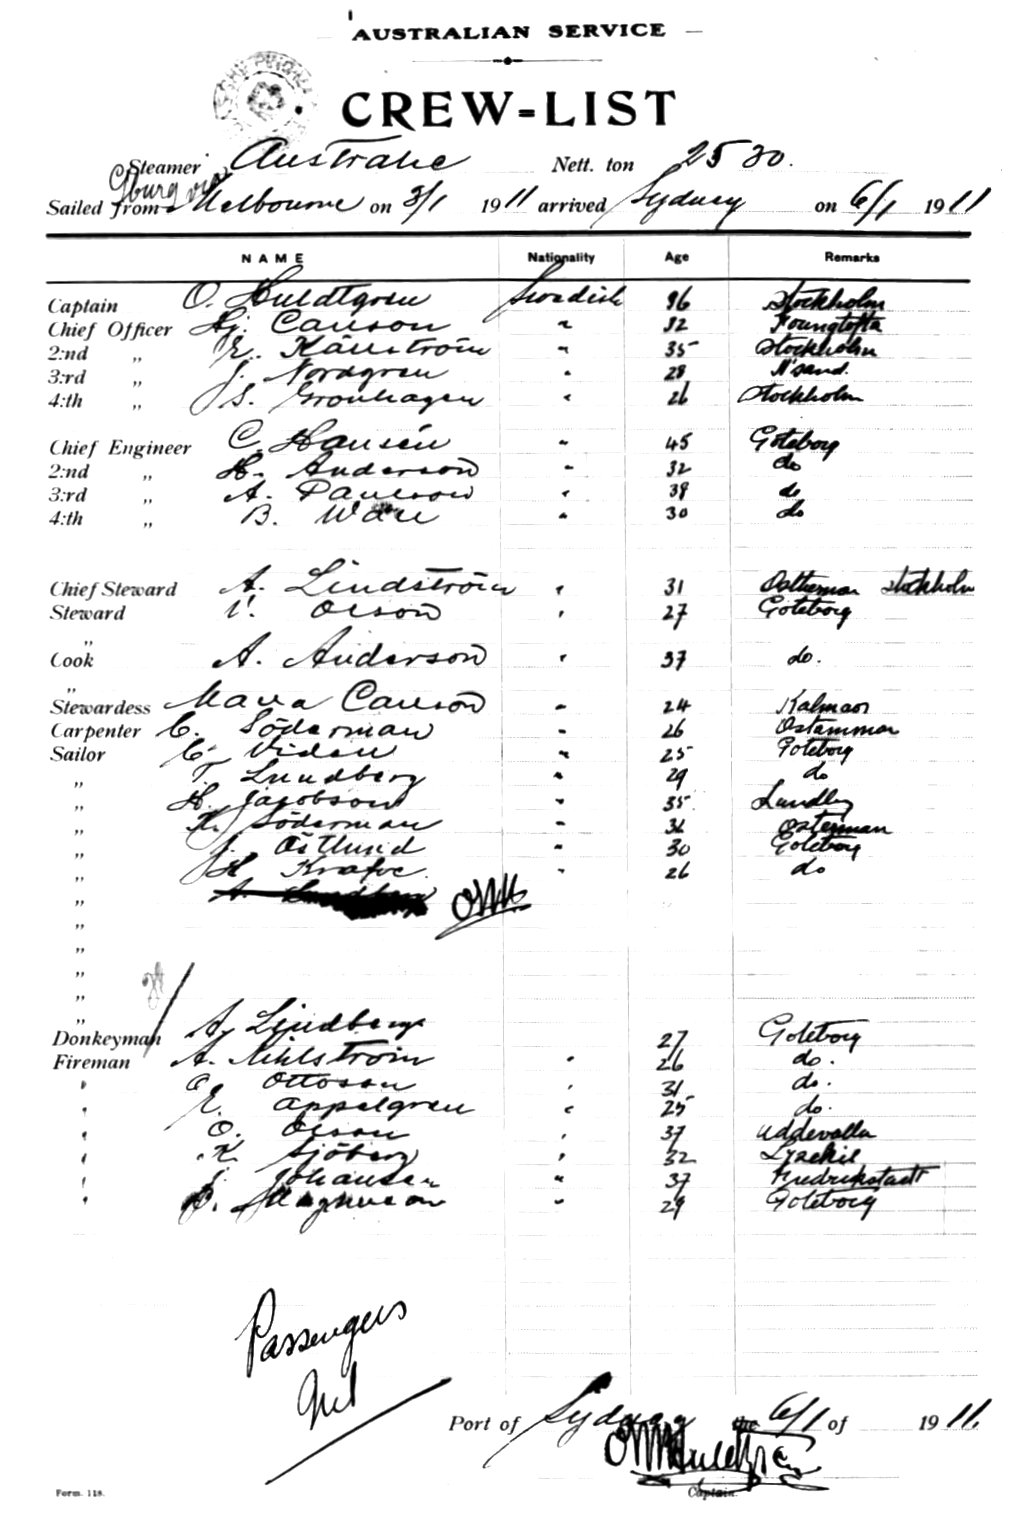 AUSTRALIAN SERVICE
CREW-LIST
Steamer Australie Nett. ton 2530.
Gburg via
Sailed from Melbourne on 3/1 1911 arrived Sydney on 6/1 1911
NAME Nationality Age Remarks
Captain O. Huldtgren Swedish 36 Stockholm
Chief Officer Hj. Carlson " 32
2:nd " E. Källström " 35 Stockholm
3:rd " J. Nordgren " 28 N'sand.
4:th " S. Gronhagen " 26 Stockholm
Chief Engineer C. Hansén " 45 Göteborg
2:nd " H. Anderson " 32 do
3:rd " A. Paulson " 38 do
4:th " B. " 30 do
Chief Steward A. Lindström " 31 Stockholm
Steward V. Olson " 27 Göteborg
"
Cook A. Anderson " 37 do.
"
Stewardess Maria Carlson " 24 Kalmar
Carpenter C. Söderman " 26 Östamman
Sailor C. Viden " 25 Göteborg
" T. Lundberg " 29 do
" H. Jacobson " 35
" K. Söderman " 31
" J. Östlund " 30 Göteborg
" H " 26 do
" A.
"
"
"
"
"
Donkeyman A. Lindberg 27 Göteborg
Fireman A. Kihlström " 26 do.
" Ottoson " 31 do.
" E. Appelgren " 25 do.
" O. Olson 37 Uddevalla
" K. Sjöberg " 32 Lysekil
" J. Johansen " 37 Fredrikstadt
" Magnuson " 29 Göteborg
Passengers
Nil
Port of Sydney the 6/1 of 1911.
Huldtgren
Captain.
Form. 118.